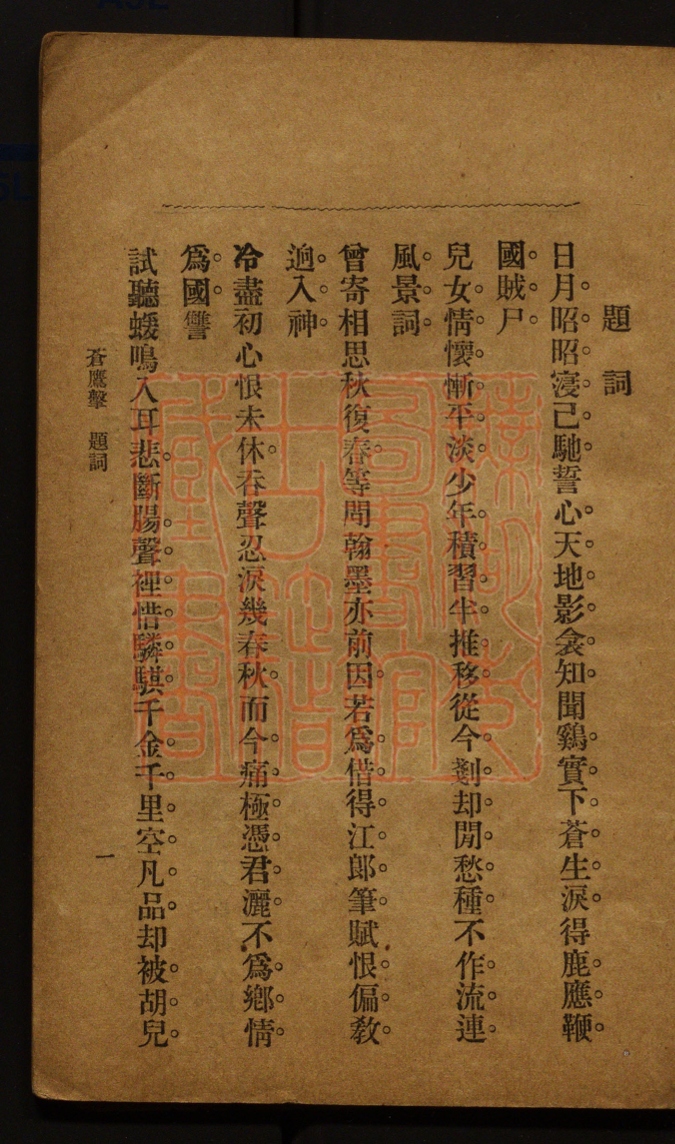 題詞
日月昭昭寖已馳誓心天地影衾知聞鷄實下蒼生淚得鹿應鞭
國賊尸
兒女情懷慚平淡少年積習半推移從今剗却閒愁種不作流連
風景詞
曾寄相思秋復春等閒翰墨亦前因若爲借得江郞筆賦恨偏敎
逈入神
冷盡初心恨未休吞聲忍淚幾春秋而今痛極憑君灑不爲鄕情
爲國讐
試聽蝯鳴入耳悲斷腸聲裡惜驎騏千金千里空凡品却被胡兒
蒼鷹擊 題詞
一